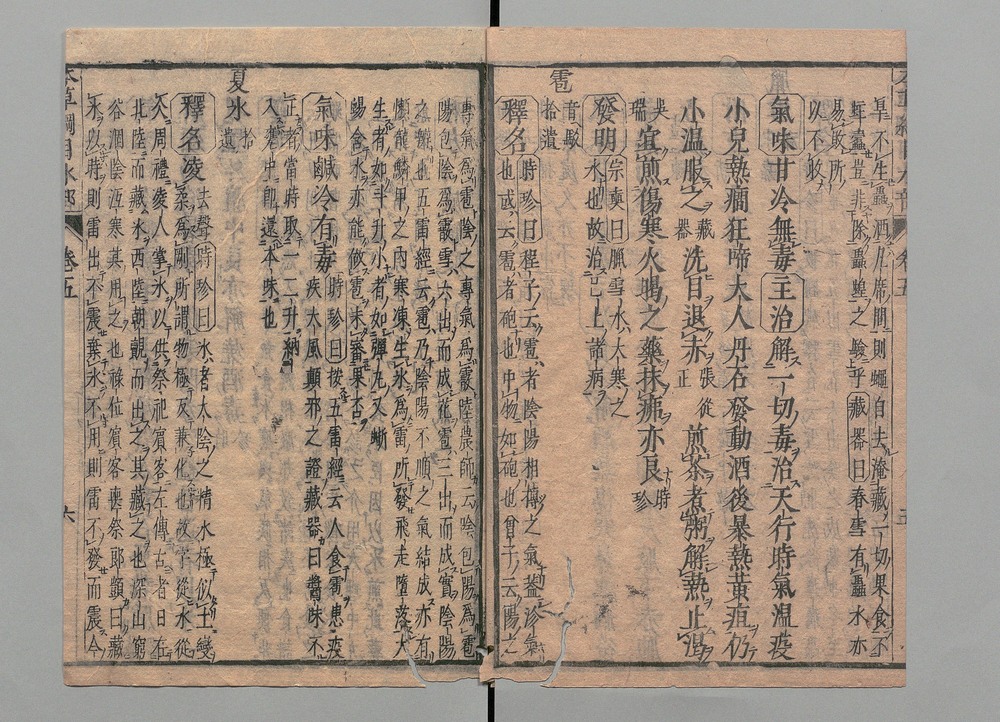 阜不生蟲洒几席間則蠅自去淹藏一切果食不
蛀蠹豈非除蟲蝗之驗乎藏器曰春雪有蟲水亦
易敗所
以不收
臘雪
氣味甘冷無毒主治解一切毒治天行時氣温疫
小兒熱癇狂啼大人丹石發動酒後暴熱黄疸仍
小温服之藏器洗目退赤張從正煎茶煮粥解熱止渴
吴瑞宜煎傷寒火暍之藥抹疿亦良時珍
發明宗奭曰臘雪水大寒之
水也故治已上諸病
雹
音駮
拾遺
釋名時珍曰程子云雹者陰陽相搏之氣葢沴氣
也或云雹者砲也中物如砲也曾子云陽之
專氣爲雹陰之專氣爲霰陸農師云陰包陽爲雹
陽包陰爲霰雪六出而成花雹三出而成實陰陽
之辨也五雷經云雹乃陰陽不順之氣結成亦有
懶龍鱗甲之内寒凍生氷爲雷所發飛走墮落大
生者如斗升小者如彈丸又蜥
蜴含水亦能作雹未審果否
氣味鹹冷有毒時珍曰按五雷經云人食雹患疫
疾大風顛邪之證藏器曰醬味不
正者當時取一二升納
入甕中即還本味也
夏氷拾遺
釋名凌去聲時珍曰氷者太陰之精水極似土變
柔爲剛所謂物極反兼化也故字從水從
仌周禮凌人掌氷以供祭祀賓客左傳古者日在
北陸而藏氷西陸朝覿而出之其藏之也深山窮
谷涸陰沍寒其用之也祿位賓客喪祭郎顗曰藏
氷以時則雷出不震棄氷不用則雷不發而震今
本草綱目水部
卷五
六